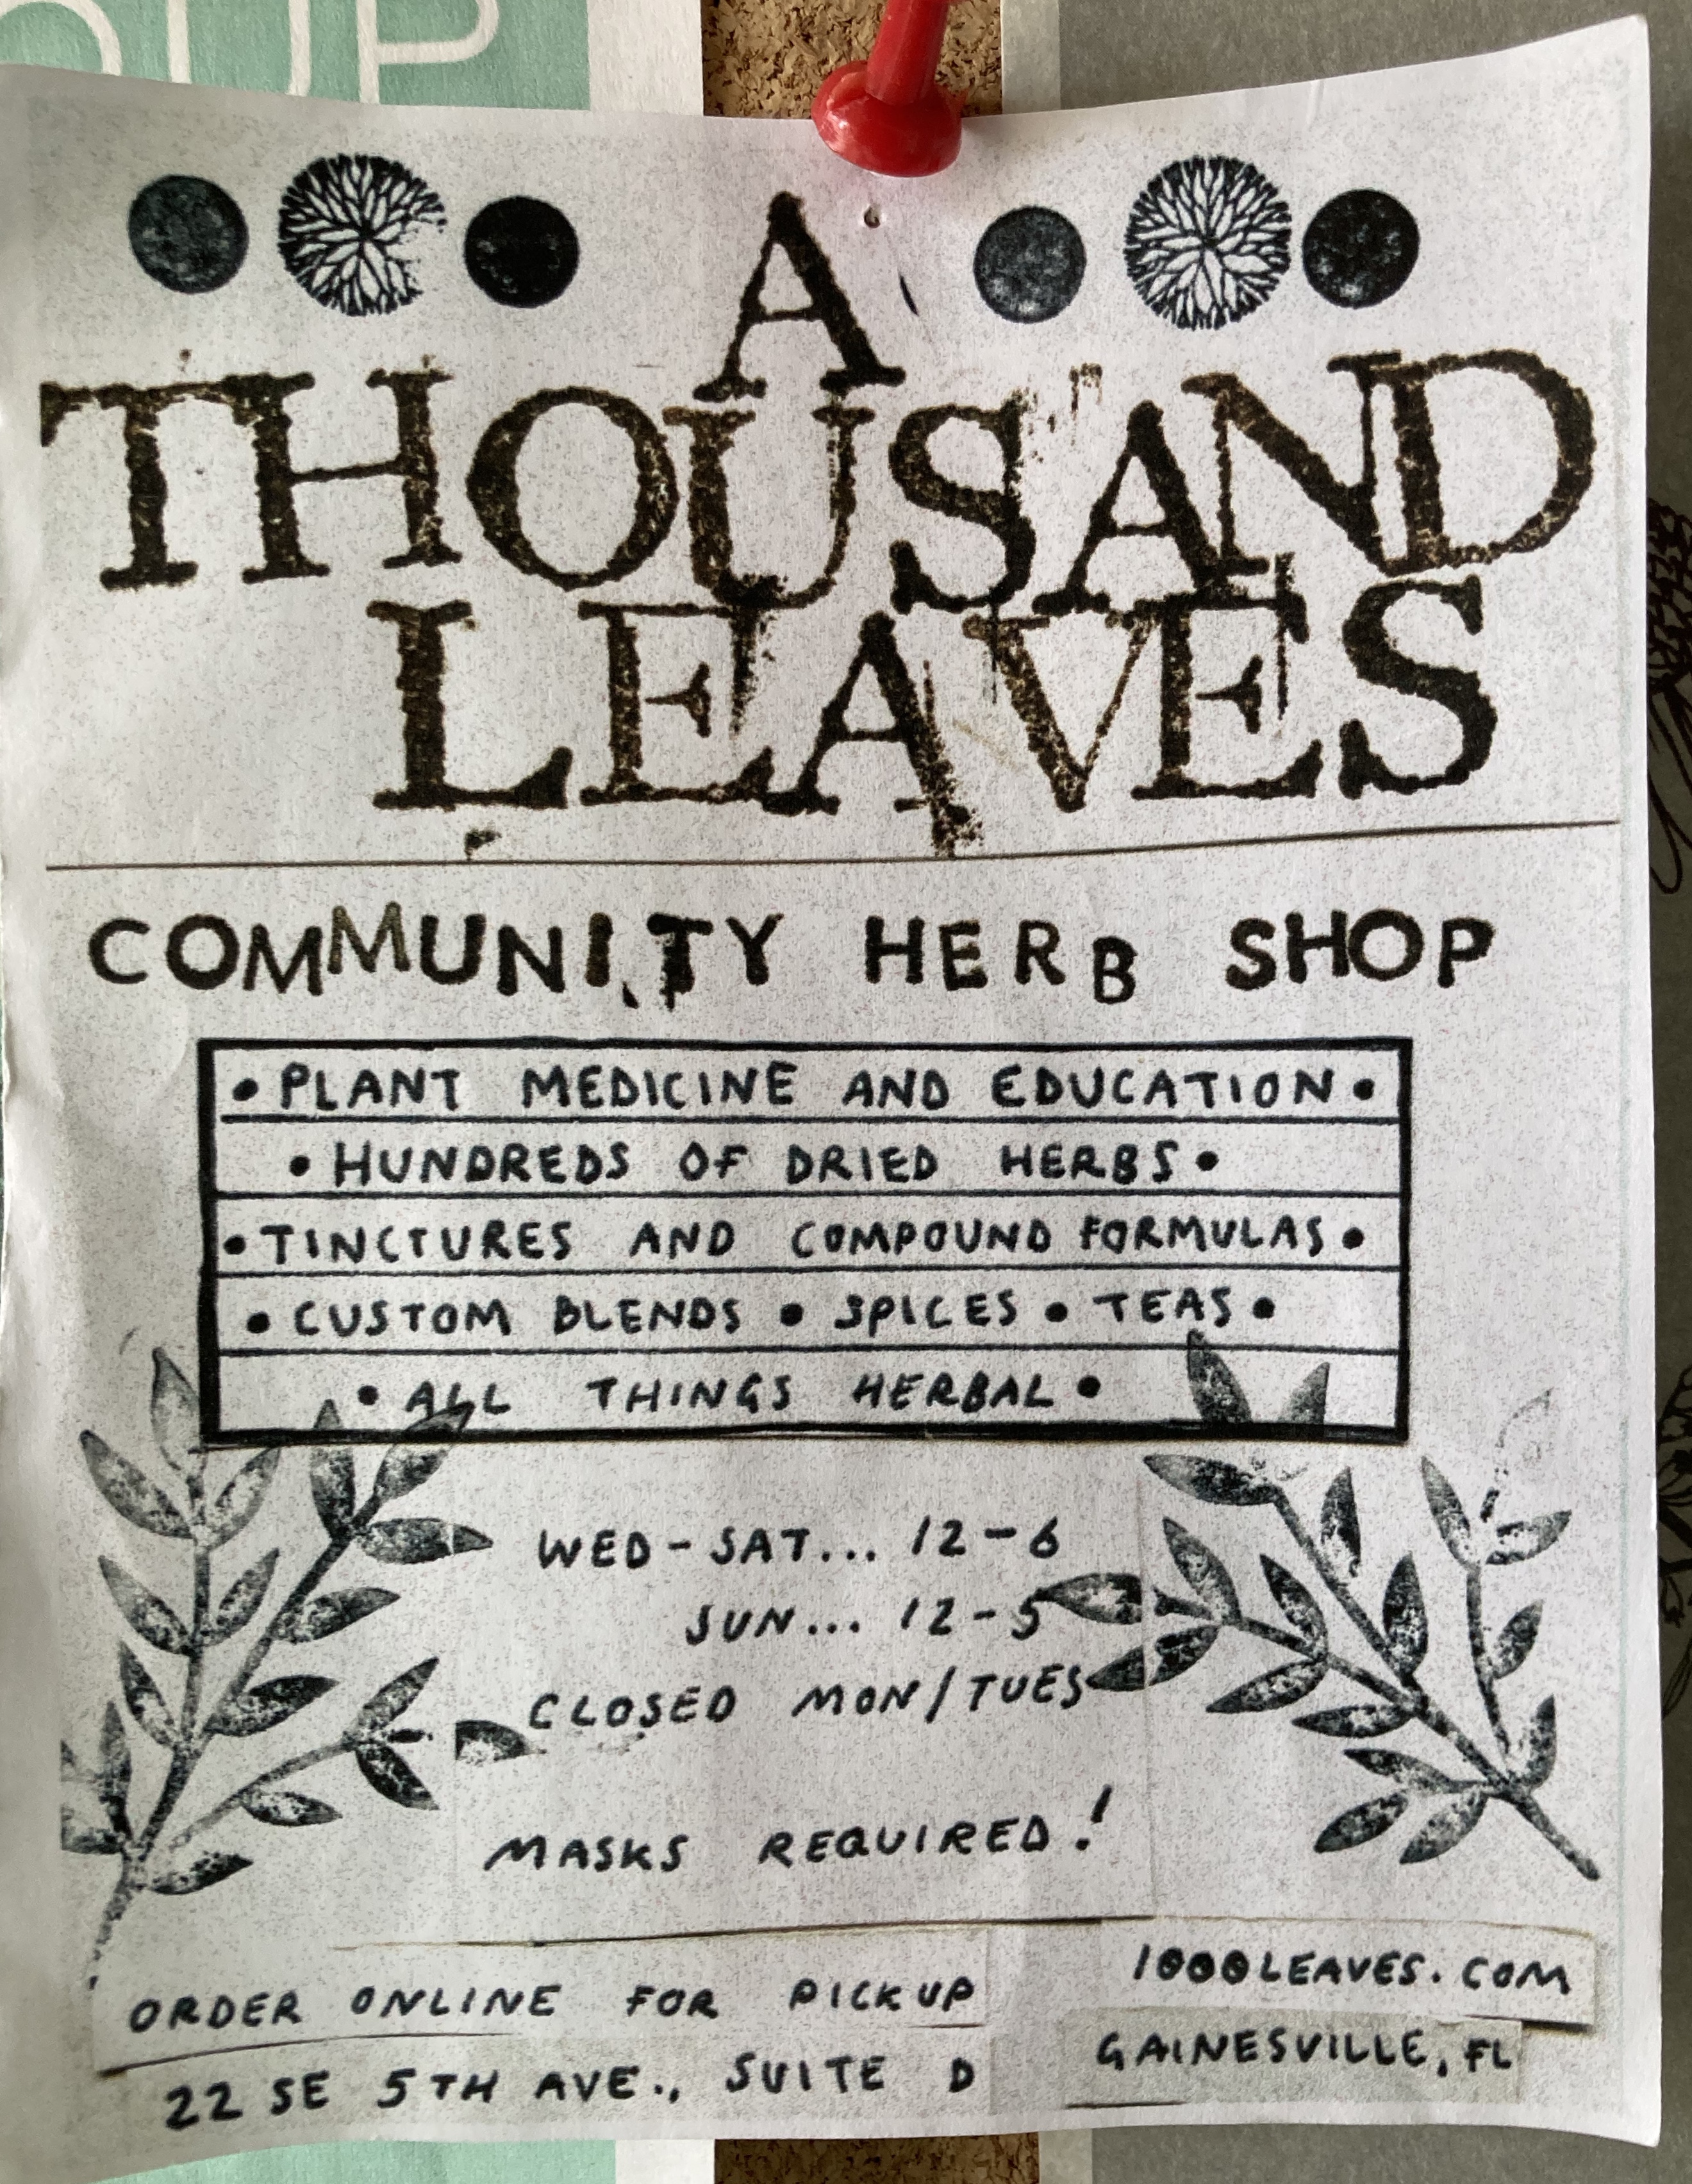 OUP
A
THOUSAND
LEAVES
COMMUNITY HERB SHOP
• PLANT MEDICINE AND EDUCATION •
• HUNDREDS OF DRIED HERBS •
• TINCTURES AND COMPOUND FORMULAS •
• CUSTOM BLENDS • SPICES • TEAS •
• ALL THINGS HERBAL •
WED-SAT... 12-6
SUN... 12-5
CLOSED MON/TUES
MASKS REQUIRED!
ORDER ONLINE FOR PICKUP
1000LEAVES.COM
22 SE 5TH AVE., SUITE D
GAINESVILLE, FL